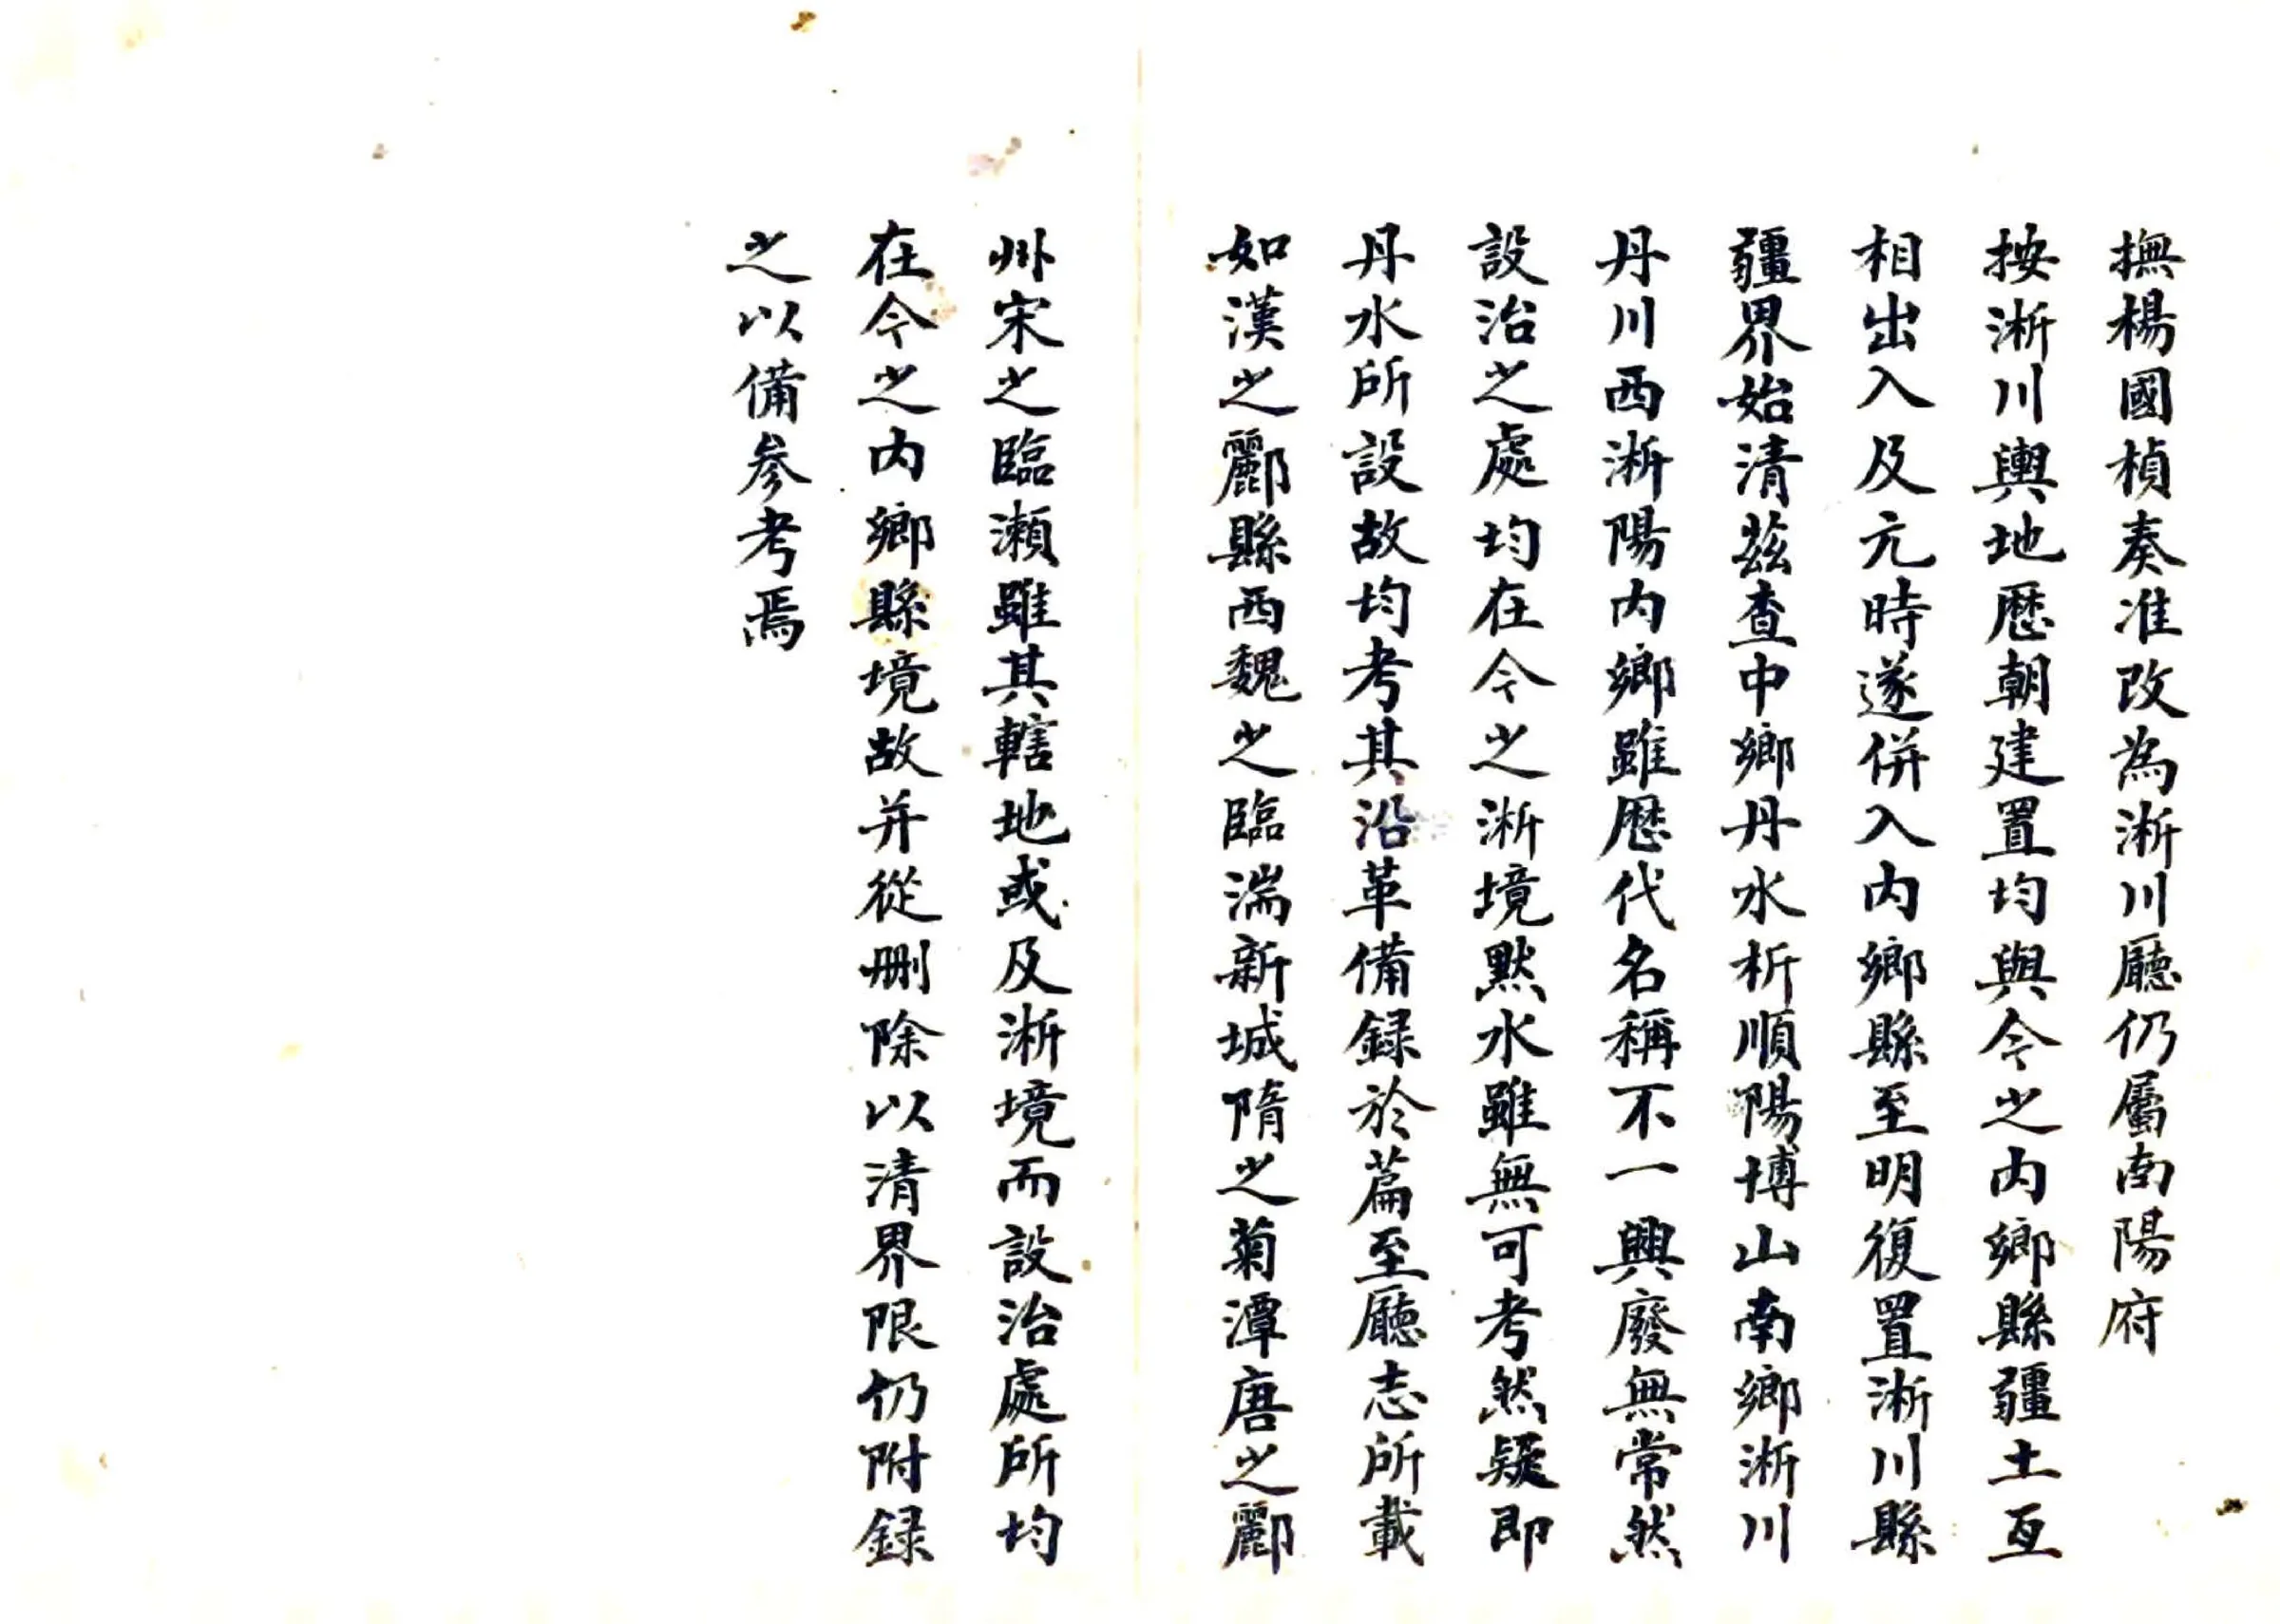 撫楊國楨奏准改為淅川廳仍屬南陽府
按淅川輿地歷朝建置均與今之內鄉縣疆土互
相出入及元時遂併入內鄉縣至明復置淅川縣
疆界始清茲查中鄉丹水析順陽博山南鄉淅川
丹川西淅陽內鄉雖歷代名稱不一興廢無常然
設治之處均在今之淅境黙水雖無可考然疑即
丹水所設故均考其沿革備録於篇至廳志所載
如漢之酈縣西魏之臨湍新城隋之菊潭唐之酈
州宋之臨瀨雖其轄地或及淅境而設治處所均
在今之內鄉縣境故并從刪除以清界限仍附録
之以備參考焉